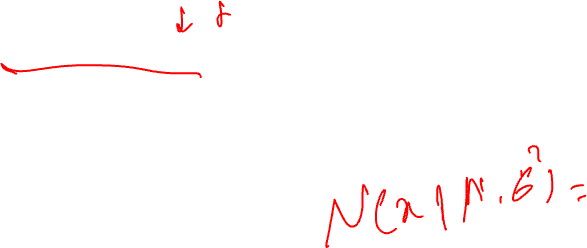 N(x | μ, σ²) =